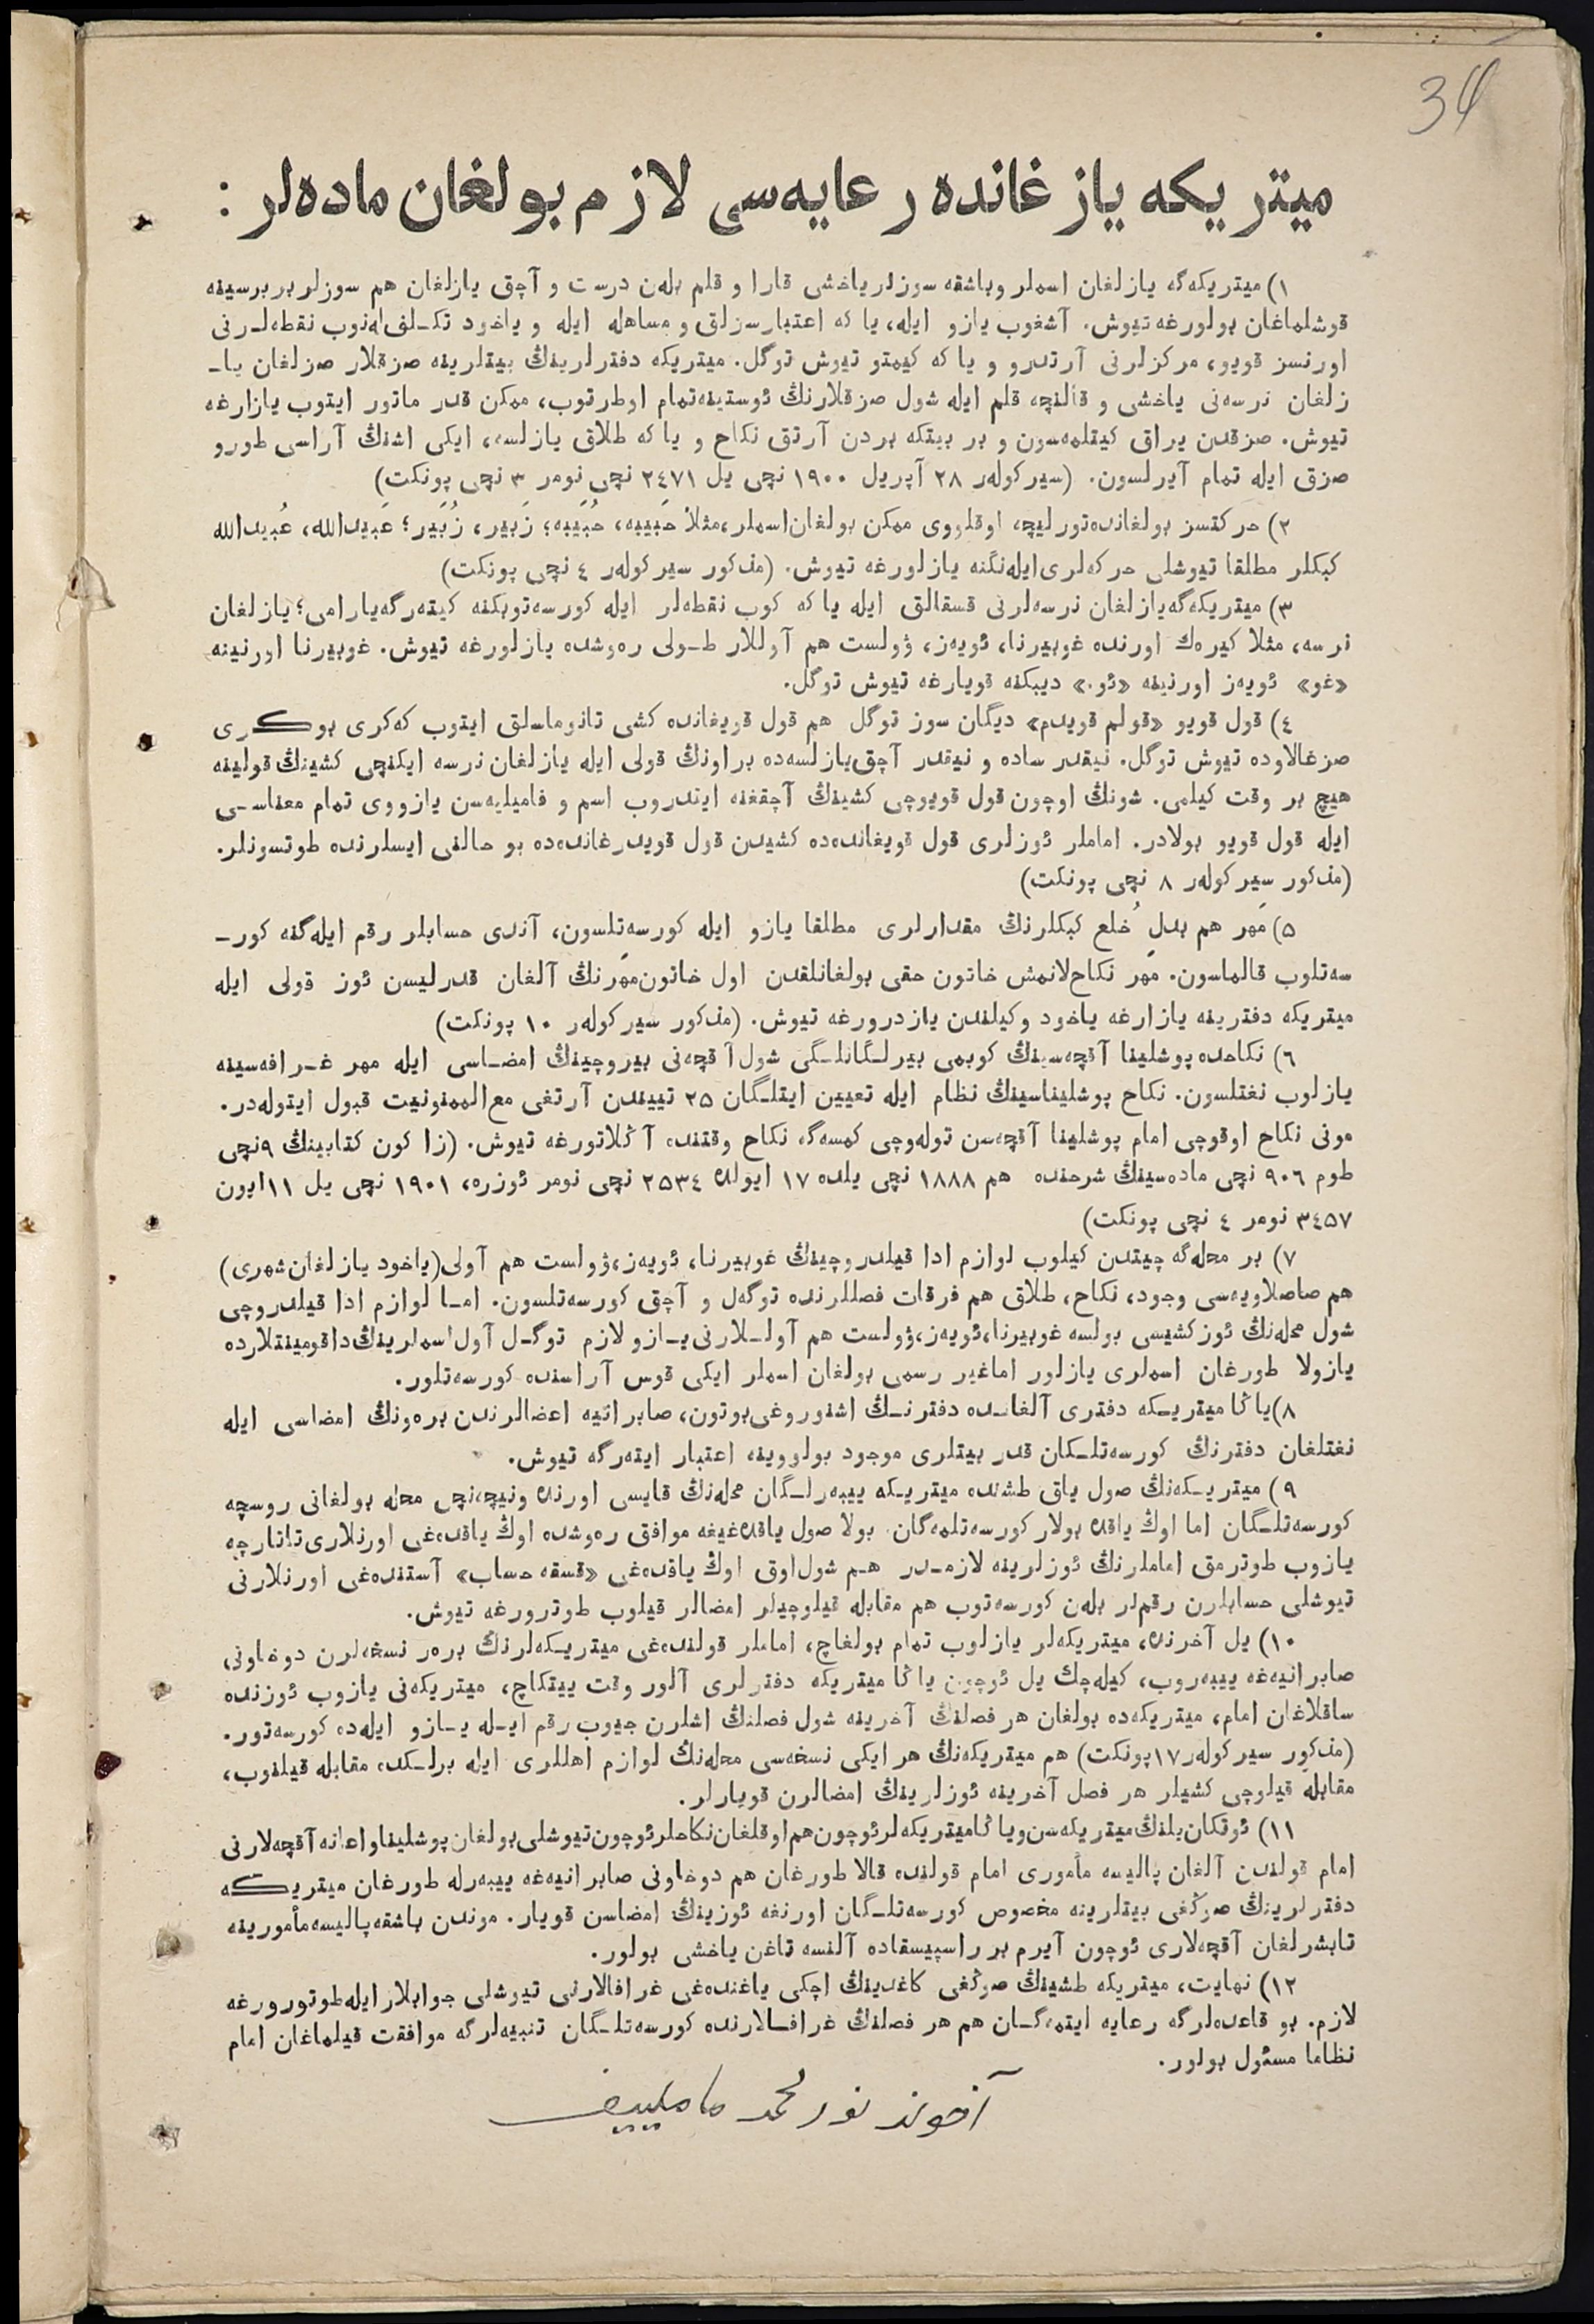 34
میتریکه یازغانده رعایه‌سی لازم بولغان ماده‌لر :
۱) میتریکه‌گه یازلغان اسملر وباشقه سوزلر یاخشی قارا و قلم بلەن درست و آچق یازلغان هم سوزلر بربرسینه
قوشلماغان بولورغه تیوش. آشغوب یازو ایله، یا که اعتبارسزلق و مساهله ایله و یاخود تکـلف‌لەنوب نقطه‌لـرنی
اورنسز قویو، مرکزلرنی آرتدرو و یا که کیمتو تیوش توگل. میتریکه دفترلرینڭ بیتلرینه صزقلار صزلغان یا‌ـ
زلغان نرسه‌نی یاخشی و قالنچه قلم ایله شول صزقلارنڭ ئوستینه‌تمام اوطرتوب، ممکن قدر ماتور ایتوب یازارغه
تیوش. صزقدن یراق کیتلمه‌سون و بر بیتکه بردن آرتق نکاح و یا که طلاق یازلسه، ایکی اشنڭ آراسی طورو
صزق ایله تمام آیرلسون. (سیرکولەر ۲۸ آپریل ۱۹۰۰ نچی یل ۲٤۷۱ نچی نومر ۳ نچی پونکت)
۲) حرکتسز بولغانده‌تورلیچه اوقلووی ممکن بولغان‌اسملر،مثلا حَبیبه، حُبَیبه؛ زَبیر، زُبَیر؛ عَبیدالله، عُبیدالله
کبکلر مطلقا تیوشلی حرکه‌لری‌ایله‌نگنه یازلورغه تیوش. (مذکور سیرکولەر ٤ نچی پونکت)
۳) میتریکه‌گه‌یازلغان نرسه‌لرنی قسقالق ایله یا که کوب نقطه‌لر ایله کورسه‌توبکنه کیتەرگه‌یارامی؛ یازلغان
نرسه، مثلا کیرەك اورنده غوبیرنا، ئویەز، ۋولست هم آوللار طـولی رەوشده یازلورغه تیوش. غوبیرنا اورنینه
«غو» ئویەز اورنینه «ئو.» دیبکنه قویارغه تیوش توگل.
٤) قول قویو «قولم قویدم» دیگان سوز توگل هم قول قویغانده کشی تانوماسلق ایتوب که‌کری بوکـری
صزغالاوده تیوش توگل. نیقدر ساده و نیقدر آچق‌یازلسه‌ده براونڭ قولی ایله یازلغان نرسه ایکنچی کشینڭ قولینه
هیچ بر وقت کیلمی. شونڭ اوچون قول قویوچی کشینڭ آچقغنه ایتدروب اسم و فامیلیه‌سن یازووی تمام معناسـی
ایله قول قویو بولادر. اماملر ئوزلری قول قویغانده‌ده کشیدن قول قویدرغانده‌ده بو حالنی ایسلرنده طوتسونلر.
(مذکور سیرکولەر ۸ نچی پونکت)
۵) مَهر هم بدلِ خُلع کبکلرنڭ مقدارلری مطلقا یازو ایله کورسه‌تلسون، آندی حسابلر رقم ایله‌گنه کور‌ـ
سه‌تلوب قالماسون. مَهر نکاح‌لانمش خاتون حقی بولغانلقدن اول خاتون‌مهرنڭ آلغان قدرلیسن ئوز قولی ایله
میتریکه دفترینه یازارغه یاخود وکیلندن یازدرورغه تیوش. (مذکور سیرکولەر ۱۰ پونکت)
٦) نکاحده پوشلینا آقچه‌سینڭ کوبمی بیرلـگانلـگی شول آقچه‌نی بیروچینڭ امضـاسی ایله مهر غـرافه‌سینه
یازلوب نغتلسون. نکاح پوشلیناسینڭ نظام ایله تعیین ایتلـگان ۲۵ تییندن آرتغی مع‌الممنونیت قبول ایتوله‌در.
مونی نکاح اوقوچی امام پوشلینا آقچه‌سن توله‌وچی کمسه‌گه نکاح وقتنده آڭلاتورغه تیوش. (زاکون کتابینڭ ۹نچی
طوم ۹۰٦ نچی ماده‌سینڭ شرحنده هم ۱۸۸۸ نچی یلده ۱۷ ایولده ۲۵۳٤ نچی نومر ئوزره، ۱۹۰۱ نچی یل ۱۱ ایون
۳٤۵۷ نومر ٤ نچی پونکت)
۷) بر محله‌گه چیتدن کیلوب لوازم ادا قیلدروچینڭ غوبیرنا، ئویەز،ۋولست هم آولی(یاخود یازلغان‌شهری)
هم صاصلاویه‌سی وجود، نکاح، طلاق هم فرقات فصللرنده توگەل و آچق کورسه‌تلسون. امـا لوازم ادا قیلدروچی
شول محله‌نڭ ئوزکشیسی بولسه غوبیرنا،ئویەز،ۋولست هم آولـلارنی یـازو لازم توگـل آول‌اسملرینڭ‌داقومینتلارده
یازولا طورغان اسملری یازلور اماغیر رسمی بولغان اسملر ایکی قوس آراسنده کورسه‌تلور.
۸)یاڭا میتریـکه دفتری آلغانـده دفترنـڭ اشنوروغی‌بوتون، صابرانیه اعضالرندن برەونڭ امضاسی ایله
نغتلغان دفترنڭ کورسه‌تلـکان قدر بیتلری موجود بولووینه اعتبار ایتەرگه تیوش.
۹) میتریـکه‌نڭ صول یاق طشنده میتریـکه ییبه‌رلـگان محله‌نڭ قایسی اورنده ونیچه‌نچی محله بولغانی روسچه
کورسه‌تلـگان اما اوڭ یاقده بولار کورسه‌تلمه‌گان. بولا صول یاقده‌غیغه موافق رەوشده اوڭ یاقده‌غی اورنلاری‌تاتارچه
یازوب طوترمق اماملرنڭ ئوزلرینه لازمـدر هـم شول‌اوق اوڭ یاقده‌غی «قسقه حساب» آستنده‌غی اورنلارنی
تیوشلی حسابلرن رقملر بلەن کورسه‌توب هم مقابله قیلوچیلر امضالر قیلوب طوترورغه تیوش.
۱۰) یل آخرنده، میتریکه‌لر یازلوب تمام بولغاچ، اماملر قولنده‌غی میتریـکه‌لرنڭ برەر نسخه‌لرن دوخاونی
صابرانیه‌غه ییبه‌روب، کیله‌چك یل ئوچون یاڭا میتریکه دفترلری آلور وقت ییتکاچ، میتریکه‌نی یازوب ئوزنده
ساقلاغان امام، میتریکه‌ده بولغان هر فصلنڭ آخرینه شول فصلنڭ اشلرن جیوب رقم ایـله یـازو ایله‌ده کورسه‌تور.
(مذکور سیرکولەر ۱۷پونکت) هم میتریکه‌نڭ هر ایکی نسخه‌سی محله‌نڭ لوازم اهللری ایله برلـکده مقابله قیلنوب،
مقابله قیلوچی کشیلر هر فصل آخرینه ئوزلرینڭ امضالرن قویارلر.
۱۱) ئوتکان‌یلنڭ‌میتریکه‌سن‌ویاڭامیتریکه‌لرئوچون‌هم‌اوقلغان‌نکاحلرئوچون‌تیوشلی‌بولغان‌پوشلیناواعانه‌آقچه‌لارنی
امام قولندن آلغان پالیسه مأموری امام قولنده قالا طورغان هم دوخاونی صابرانیه‌غه ییبه‌رله طورغان میتریـکه
دفترلرینڭ صوڭغی بیتلرینه مخصوص کورسه‌تلـگان اورنغه ئوزینڭ امضاسن قویار. موندن باشقه‌پالیسه‌مأمورینه
تابشرلغان آقچه‌لاری ئوچون آیرم بر راسپیسقاده آلنسه تاغن یاخشی بولور.
۱۲) نهایت، میتریکه طشینڭ صوڭغی کاغدینڭ اچکی یاغنده‌غی غرافالارنی تیوشلی جوابلارایله‌طوتورورغه
لازم. بو قاعده‌لرگه رعایه ایتمه‌گـان هم هر فصلنڭ غرافـالارنده کورسه‌تلـگان تنبیه‌لرگه موافقت قیلماغان امام
نظاما مسئول بولور.
آخوند نورمحمد ماملییف